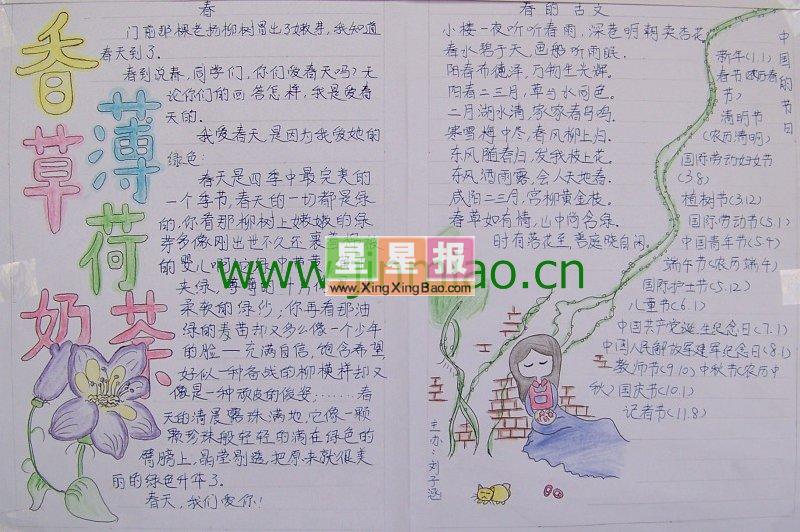 香草
薄荷
奶茶
春
门前那棵老杨柳树冒出了嫩芽，我知道
春天到了．
春到说春，同学们，你们爱春天吗？无
论你们的回答怎样，我是爱春
天的．
我爱春天，是因为我爱她的
绿色：
春天是四季中最完美的
一个季节，春天的一切都是绿
的，你看那柳树上嫩嫩的绿
芽多像刚出世不久还裹着
的婴儿啊
夹绿
柔软的绿纱，你再看那油
绿的麦苗却又多么像一个少年
的脸—充满自信，饱含希望，
好似一种备战的柳模样却又
像是一种顽皮的俊姿……春
天的清晨露珠满地，它像一颗
颗珍珠般轻轻的滴在绿色的
臂膀上，晶莹剔透，把原来就很美
丽的绿色升华了．
春天，我们爱你！
春的古文
小楼一夜听听春雨，深巷明朝卖杏花
春水碧于天，画船听雨眠．
阳春布德泽，万物生光辉．
阳春二三月，草与水同色．
二月湖水清，家家春鸟鸣．
寒雪梅中尽，春风柳上归．
东风随春归，发我枝上花．
东风洒雨露，会人天地春．
咸阳二三月，宫柳黄金枝．
春草如有情，山中尚含绿．
时有落花至，
中国的节日
新年(1.1)
春节(农历春
节)
清明节
(农历清明)
国际劳动妇女节
(3.8)
植树节(3.12)
国际劳动节(5.1)
中国青年节(5.4)
端午节(农历端午)
国际护士节(5.12)
儿童节(6.1)
中国共产党诞生纪念日(7.1)
中国人民解放军建军纪念日(8.1)
教师节(9.10)中秋节(农历中
秋)国庆节(10.1)
记者节(11.8)
主办：刘子涵
星星报
www.XingXingBao.com